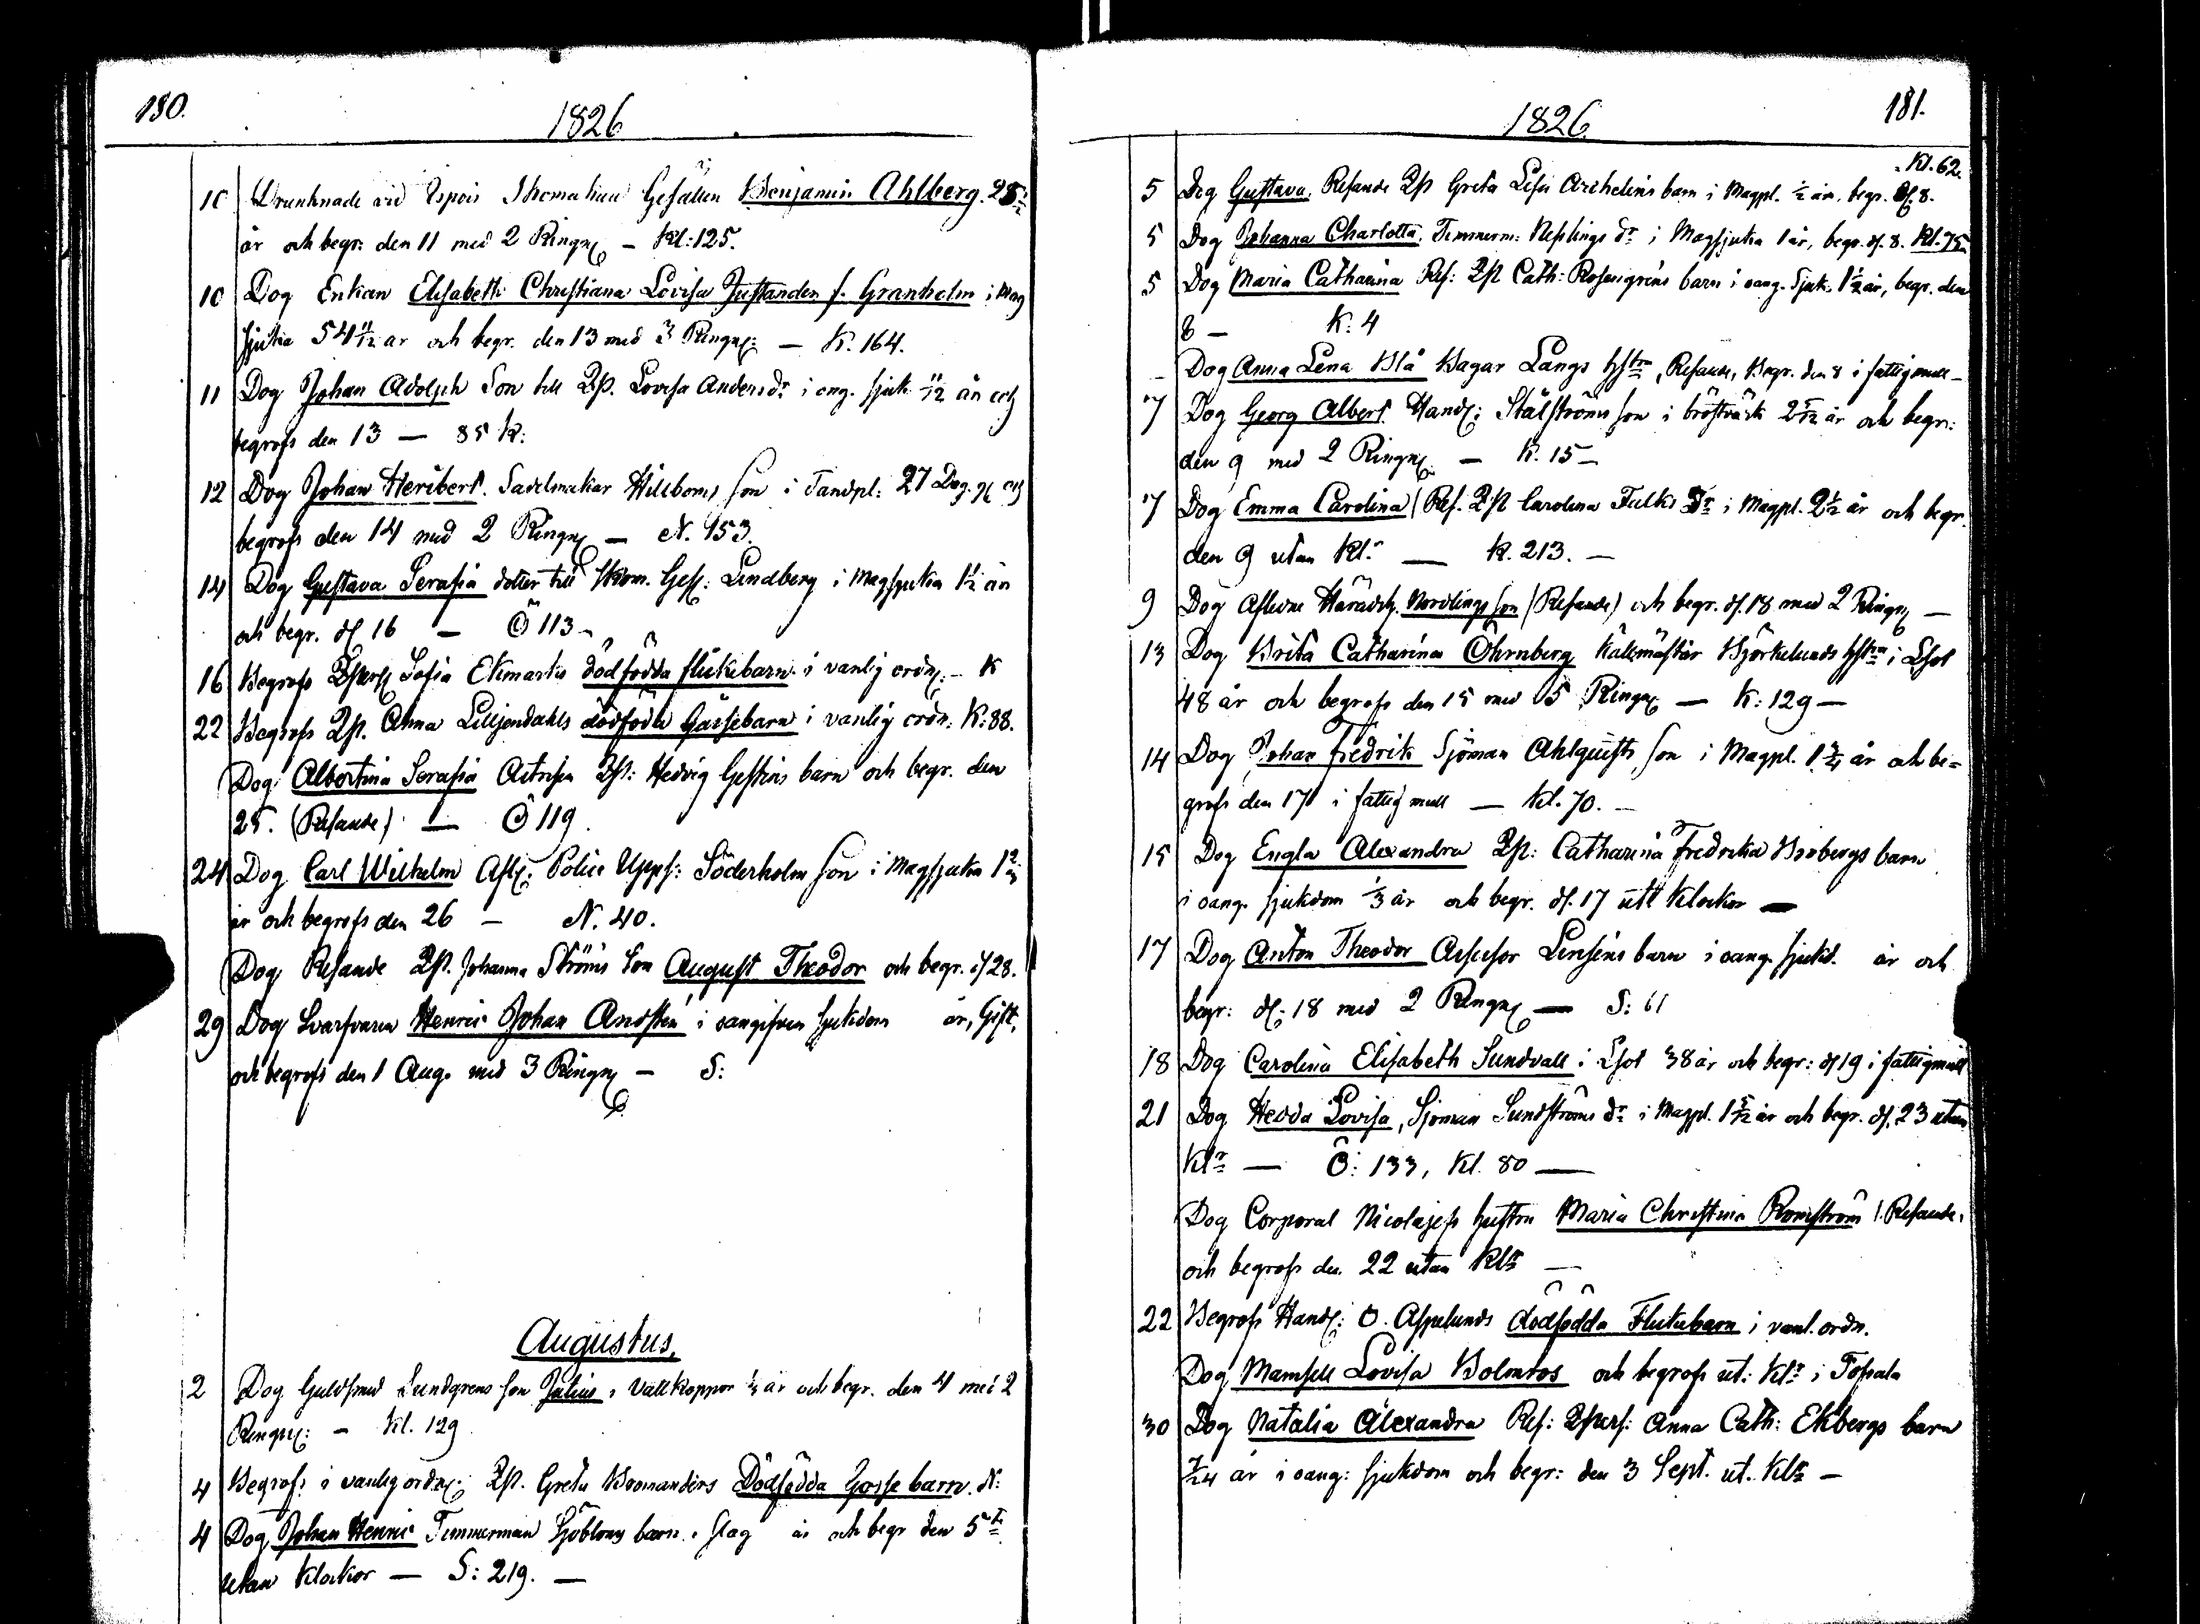 180.
1826
10 Drunknade vid Espois Skomakare Gesällen Benjamin Ahlberg. 25 1/2
år och begr: den 11 med 2 Ringn: — Kl: 125.
10 Dog Enkan Elisabeth Christiana Lovisa Justander f. Granholm i Mag
sjuka 54 11/12 år och begr. den 13 med 3 Ringn: — K. 164.
11 Dog Johan Adolph Son till Qp. Lovisa Andersdr i ang. sjuk. 11/12 år och
begrofs den 13 — 85 K:
12 Dog Johan Heribert. Sadelmakar Hillboms son i Tandpl: 27 Dag. gl och
begrofs den 14 med 2 Ringn — N. 153.
14 Dog Gustava Serafia dotter till Skom. Ges: Lindberg i Magsjuka 1 1/2 år
och begr. d. 16 — Ö 113 –
16 Begrofs Qpers Sofia Ekmarks dödfödda flickebarn i vanlig ordn: – K
22 Begrofs Qp. Anna Lilljendahls dödfödda Gossebarn i vanlig ordn: K: 88.
Dog Albertina Serafia Actrisen Qp: Hedvig Gestrins barn och begr. den
25. (Resande) — Ö 119.
24 Dog Carl Wilhelm Afl: Police Upps: Söderholm son i Magsjuka 1
år och begrofs den 26 — N. 40.
Dog Resande Qp. Johanna Ströms son August Theodor och begr. d 28.
29 Dog Svarfvaren Henric Johan Andsten i oangifven sjukdom år, Gift,
och begrofs den 1 Aug. med 3 Ringn — S:
Augustus,
2 Dog Guldsmed Lundgrens son Julius i Vattkoppor 1/3 år och begr. den 4 med 2
Ringn: – Kl. 129
4 Begrofs i vanlig ordn: Qp. Greta Bromanders Dödfödda Gosse barn. N:
4 Dog Johan Henric Timmerman Sjöbloms barn i slag år och begr den 5te
utan klockor — S: 219. —
1826
181.
Kl. 62.
5 Dog Gustava. Resande Qp Greta Lisa Archelins barn i Magpl. 1/2 år, begr. d. 8.
5 Dog Johanna Charlotta. Timmerm: Neslings dr i Magsjuka 1 år, begr. d. 8. Kl. 75.
5 Dog Maria Catharina Res: Qp Cath: Rosengrens barn i oang. Sjuk. 1 1/2 år, begr. den
8 — K: 4
– Dog Anna Lena Blå Bagar Langs hstru, Resande, Begr. den 8 i fattigmull –
7 Dog Georg Albert Handl: Stålströms son i bröstvärk 2 5/12 år och begr:
den 9 med 2 Ringn: — K. 15 –
7 Dog Emma Carolina (Res. Qp Carolina Falks dr i Magpl. 2 1/2 år och begr.
den 9 utan Kl.r — K. 213. —
9 Dog Aflidne Häradsh. Nordlings son (Resande) och begr. d. 18 med 2 Ringn —
13 Dog Brita Catharina Öhrnberg Källmästar Björkelunds hstru i Lsot
48 år och begrofs den 15 med 5 Ringn — K: 129 —
14 Dog Johan fredrik Sjöman Ahlquists son i Magpl. 1 3/4 år och be=
grofs den 17 i fattigmull — Kl. 70. —
15 Dog Engla Alexandra Qp: Catharina Fredrika Brobergs barn
i oang. sjukdom 1/3 år och begr. d. 17 utt klockor —
17 Dog Anton Theodor Assessor Linsens barn i oang. sjukd. år och
begr: d. 18 med 2 Ringn — S: 61
18 Dog Carolina Elisabeth Sundvall i Lsot 38 år och begr: d 19 i fattigmull
21 Dog Hedda Lovisa, Sjöman Sundströms dr i Magpl. 1 5/12 år och begr. d. 23 utan
Klr — Ö: 133, Kl. 80 —
Dog Corporal Nicolajefs hustru Maria Christina Romström (Resande)
och begrofs den 22 utan Klr —
22 Begrofs Handl: O. Aspelunds dödfödda Flickebarn i vanl. ordn.
Dog Mamsell Lovisa Bolmros och begrofs ut. Klr i Tofsala
30 Dog Natalia Alexandra Res: Qpers: Anna Cath: Ekbergs barn
7/24 år i oang: sjukdom och begr: den 3 Sept. ut. Klr —